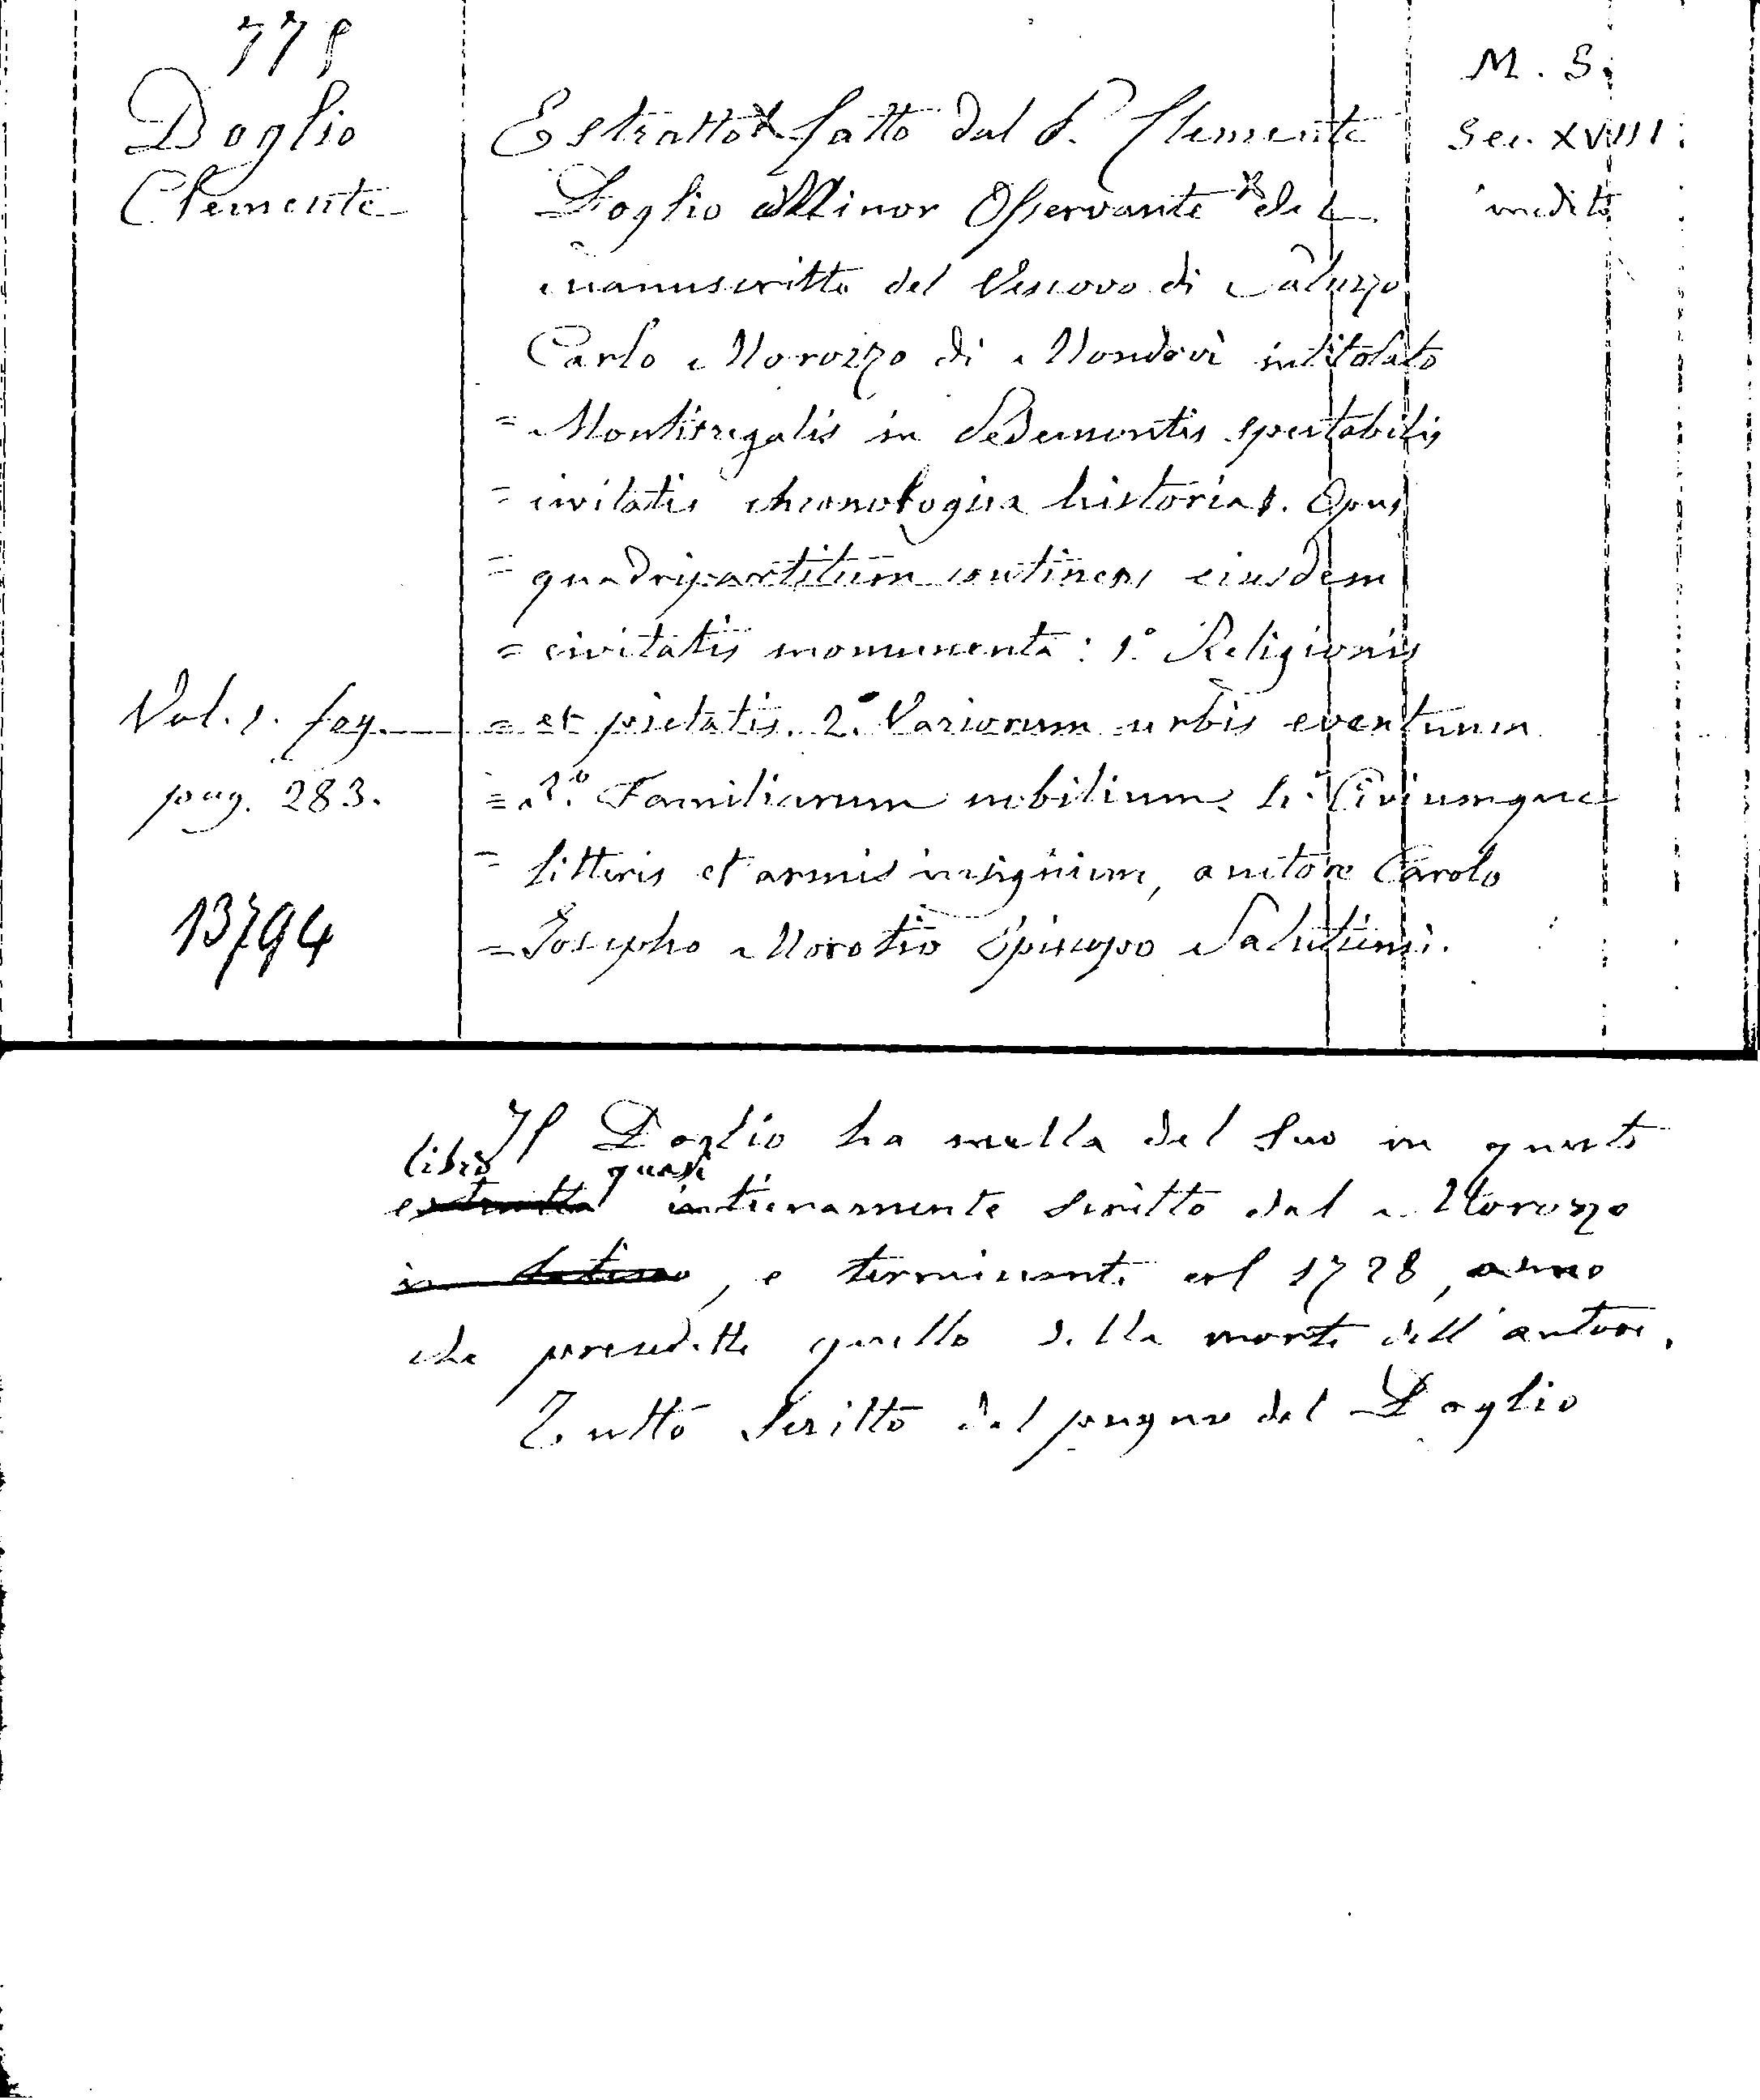 775
Doglio
Clemente
Vol. 1. fog.
pag. 283.
13794
Estratto fatto dal P. Clemente
Doglio Minor Osservante del
manuscritto del Vescovo di Saluzzo
Carlo Morozzo di Mondovì intitolato
= Montisregalis in Pedemontis spectabilis
= civitatis chronologica historia. Opus
= quadripartitum continens eiusdem
= civitatis monumenta: 1.° Religionis
= et pietatis. 2.° Variorum urbis eventuum
= 3.° Familiarum nobilium. 4.° Civiumque
= litteris et armis insignium, auctore Carolo
= Josepho Morotio Episcopo Salutiensi.
M. S.
Sec. XVIII.
inedito
Il Doglio ha nulla del suo in questo
libro quasi
estratto intieramente scritto dal Morozzo
in latino, e terminante al 1728, anno
che precedette quello della morte dell'autore.
Tutto scritto del pugno del Doglio